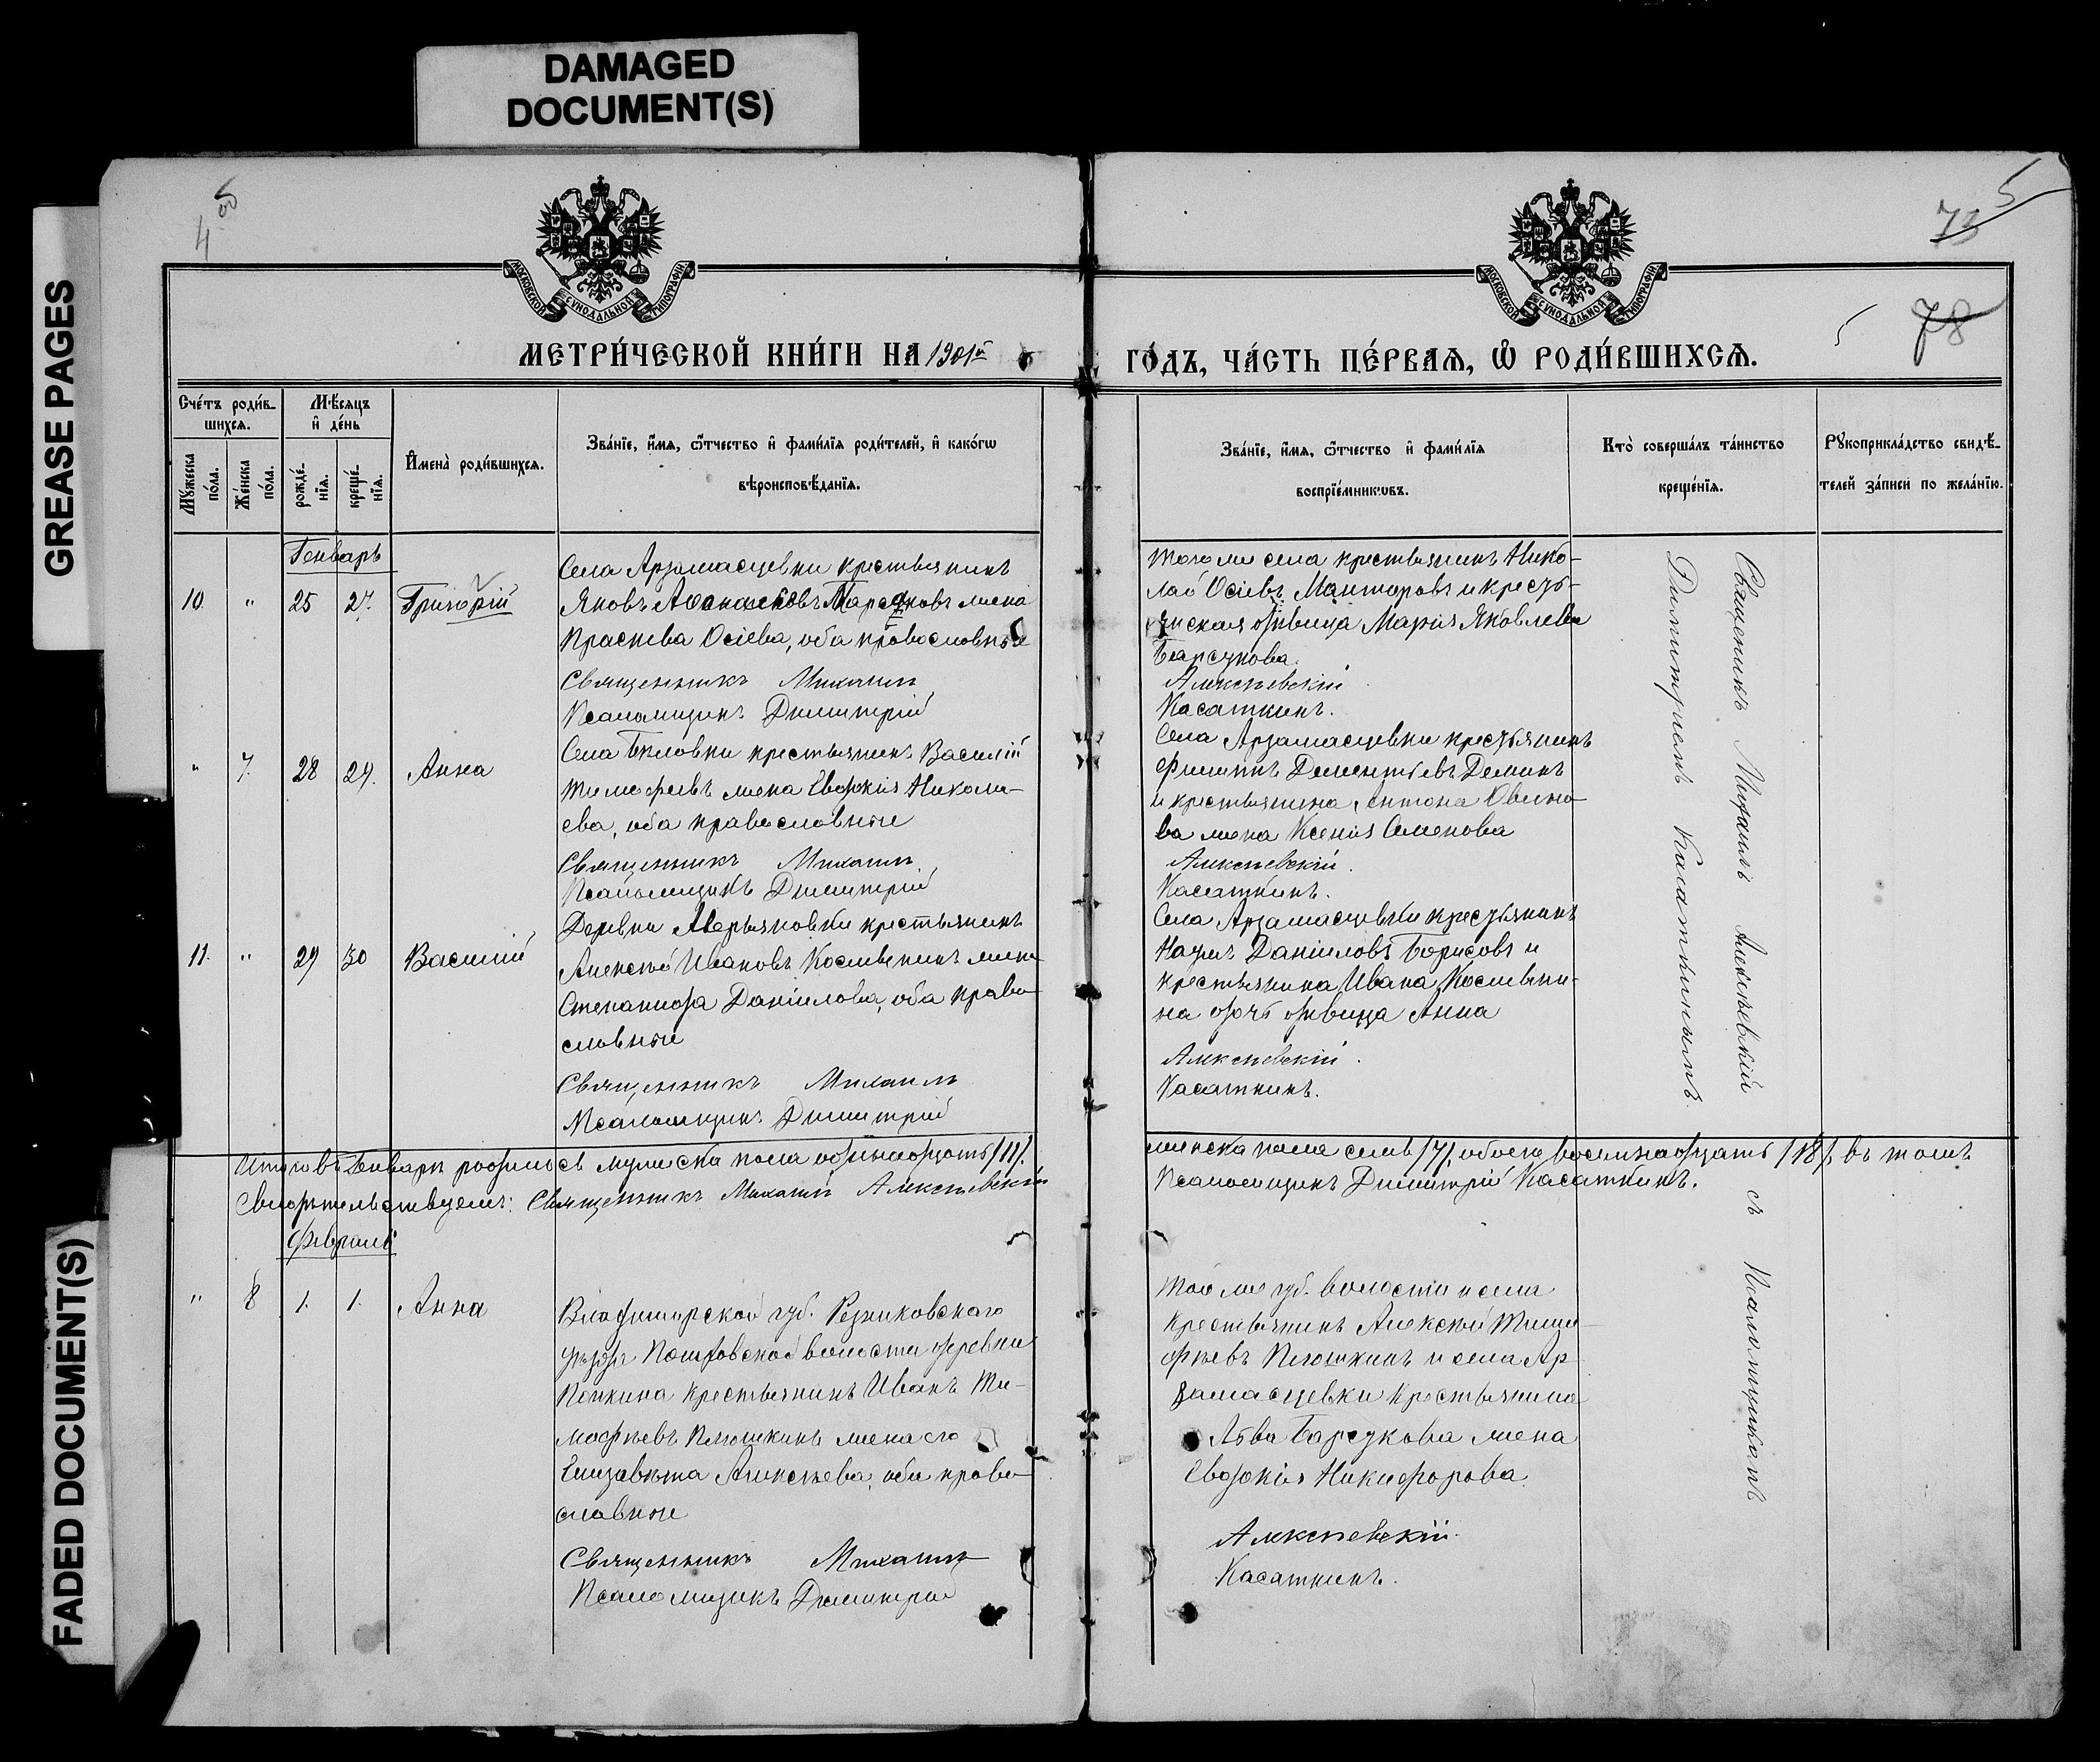 DAMAGED
DOCUMENT(S)
GREASE PAGES
FADED DOCUMENT(S)
4
73
5
78
МОСКОВСКОЙ СѴНОДАЛЬНОЙ ТИПОГРАФІИ
МОСКОВСКОЙ СѴНОДАЛЬНОЙ ТИПОГРАФІИ
МЕТРИ́ЧЕСКОЙ КНИ́ГИ НА 1901й
ГО́ДЪ, ЧА́СТЬ ПЕ́РВАѦ, Ѡ҆ РОДИ́ВШИХСѦ.
Сче́тъ роди́в-
шихсѧ.
Му́жеска по́ла.
Же́нска по́ла.
Мѣ́сѧцъ
и҆ де́нь
рожде́-
нїѧ.
креще́-
нїѧ.
И҆мена̀ роди́вшихсѧ.
Зва́нїе, и҆́мѧ, ѻ҆́тчество и҆ фами́лїѧ роди́телей, и҆ како́гѡ
вѣроисповѣ́данїѧ.
Зва́нїе, и҆́мѧ, ѻ҆́тчество и҆ фами́лїѧ
воспрїе́мникѡвъ.
Кто̀ соверша́лъ та́инство
креще́нїѧ.
Рꙋкоприкла́дство свидѣ́-
телей за́писи по жела́нїю.
Генварь
10. " 25 27. Григорій
Села Арзамасцевки крестьянинъ
Яковъ Аѳанасьевъ Барсуковъ жена
Праскева Осіева, оба православные
Священникъ Михаилъ
Псаломщикъ Димитрій
Того же села крестьянинъ Нико-
лай Осіевъ Манторовъ и кресть-
янская дѣвица Марія Яковлева
Барсукова.
Алексѣевскій
Касаткинъ.
" 7. 28 29. Анна
Села Бѣловки крестьянинъ Василій
Тимофеевъ жена Евдокія Никола-
ева, оба православные
Священникъ Михаилъ
Псаломщикъ Димитрій
Села Арзамасцевки крестьянинъ
Филиппъ Дементьевъ Деминъ
и крестьянина Антона Овино-
ва жена Ксенія Семенова
Алексѣевскій.
Касаткинъ.
11. " 29 30 Василій
Деревни Аверьяновки крестьянинъ
Алексѣй Ивановъ жена
Степанида Даніилова, оба право-
славные
Священникъ Михаилъ
Псаломщикъ Димитрій
Села Арзамасцевки крестьянинъ
Даніиловъ Борисовъ и
крестьянина Ивана
на дочь дѣвица Анна
Алексѣевскій.
Касаткинъ.
Священникъ Михаилъ Алексѣевскій съ Псаломщикомъ
Димитріемъ Касаткинымъ.
Итого въ Генварѣ родилось мужеска пола одинадцать /11/.
женска пола семь /7/, обоего восемнадцать /18/, въ томъ
Свидѣтельствуемъ: Священникъ Михаилъ Алексѣевскій
Псаломщикъ Димитрій Касаткинъ.
Февраль
" 8 1. 1. Анна
Владимирской губ.
уѣзда волости деревни
крестьянинъ Иванъ Ти-
мофѣевъ Плюшкинъ жена его
Елизавета Алексѣева, оба право-
славные
Священникъ Михаилъ
Псаломщикъ Димитрій
Той же губ. волости и села
крестьянинъ Алексѣй Тимо-
фѣевъ Плюшкинъ и села Ар-
замасцевки крестьянина
Льва Барсукова жена
Евдокія Никифорова.
Алексѣевскій.
Касаткинъ.